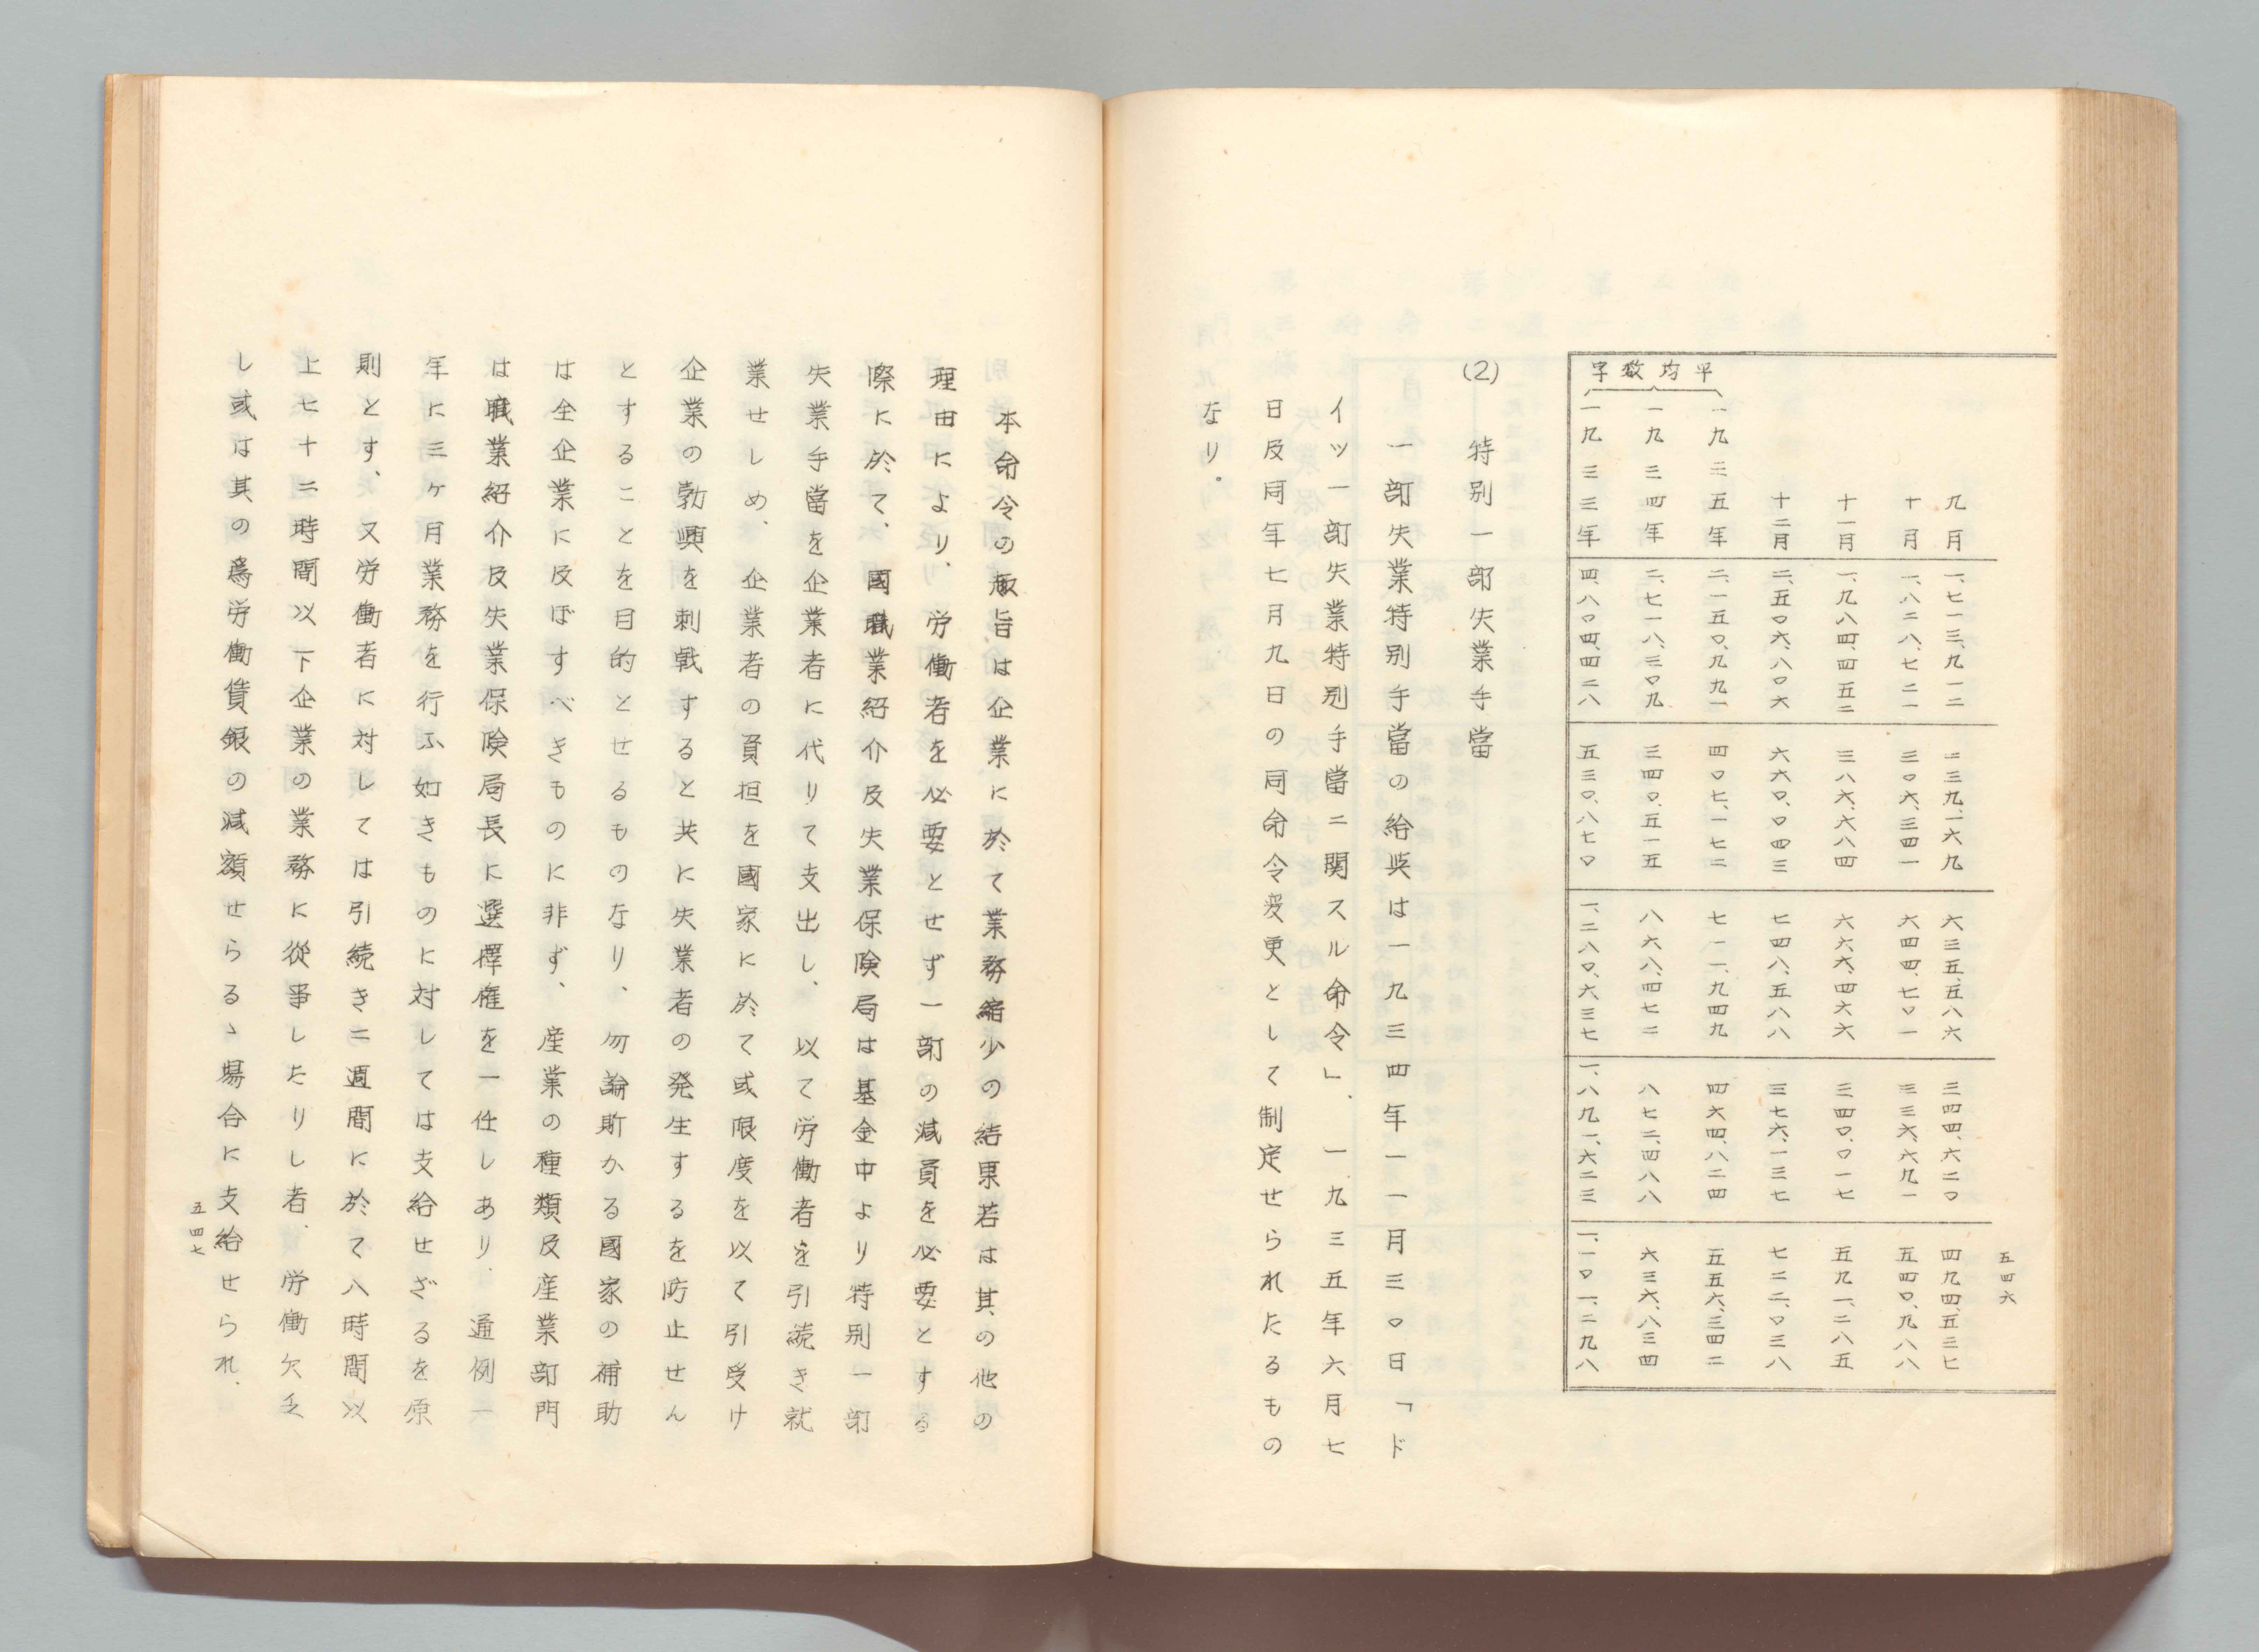 五四六
九月 一、七一三、九一二 二三九、一六九 六三五、五八六 三四四、六二〇 四九四、五三七
十月 一、八二八、七二一 三〇六、三四一 六四四、七〇一 三三六、六九一 五四〇、九八八
十一月 一、九八四、四五二 三八六、六八四 六六六、四六六 三四〇、〇一七 五九一、二八五
十二月 二、五〇六、八〇六 六六〇、〇四三 七四八、五八八 三七六、一三七 七二二、〇三八
平均数字
一九三五年 二、一五〇、九九一 四〇七、一七二 七一一、九四九 四六四、八二四 五五六、三四二
一九三四年 二、七一八、三〇九 三四〇、五一五 八六八、四七二 八七二、四八八 六三六、八三四
一九三三年 四、八〇四、四二八 五三〇、八七〇 一、二八〇、六三七 一、八九一、六二三 一、一〇一、二九八
(2) 特別一部失業手當
一部失業特別手當の給與は一九三四年一一月三〇日「ド
イツ一部失業特別手當ニ関スル命令」、一九三五年六月七
日及同年七月九日の同命令変更として制定せられたるもの
なり。
本命令の趣旨は企業に於て業務縮少の結果若は其の他の
理由により、労働者を必要とせず一部の減員を必要とする
際に於て、國職業紹介及失業保険局は基金中より特別一部
失業手當を企業者に代りて支出し、以て労働者を引続き就
業せしめ、企業者の負担を國家に於て或限度を以て引受け
企業の勃興を刺戟すると共に失業者の発生するを防止せん
とすることを目的とせるものなり、勿論斯かる國家の補助
は全企業に及ぼすべきものに非ず、産業の種類及産業部門
は職業紹介及失業保険局長に選擇権を一任しあり、通例一
年に三ヶ月業務を行ふ如きものに対しては支給せざるを原
則とす、又労働者に対しては引続き二週間に於て八時間以
上七十二時間以下企業の業務に從事したりし者、労働欠乏
し或は其の為労働賃銀の減額せらるゝ場合に支給せられ、
五四七